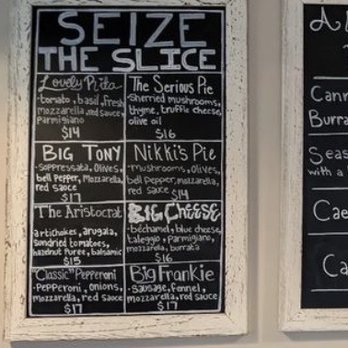 SEIZE
THE SLICE
Lovely Rita
·tomato, basil, fresh
mozzarella, red sauce,
Parmigiano
$14
The Serious Pie
·Sherried mushrooms,
thyme, truffle cheese,
olive oil
$16
BIG TONY
·Soppressata, Olives,
bell Pepper, Mozzarella,
red sauce
$17
Nikki's Pie
·Mushrooms, Olives,
bell pepper, mozzarella,
red sauce $14
The Aristocrat
artichokes, arugala,
Sundried tomatoes,
hazelnut Puree, balsamic
$15
BIG CHEESE
·béchamel, blue cheese,
taleggio, Parmigiano,
mozzarella, burrata
$16
"Classic" Pepperoni
·Pepperoni, Onions,
mozzarella, red sauce
$17
Big Frankie
·Sausage, Fennel,
mozzarella, red sauce
$17
Cann
Burra
Seas
with a
Cae
Ca